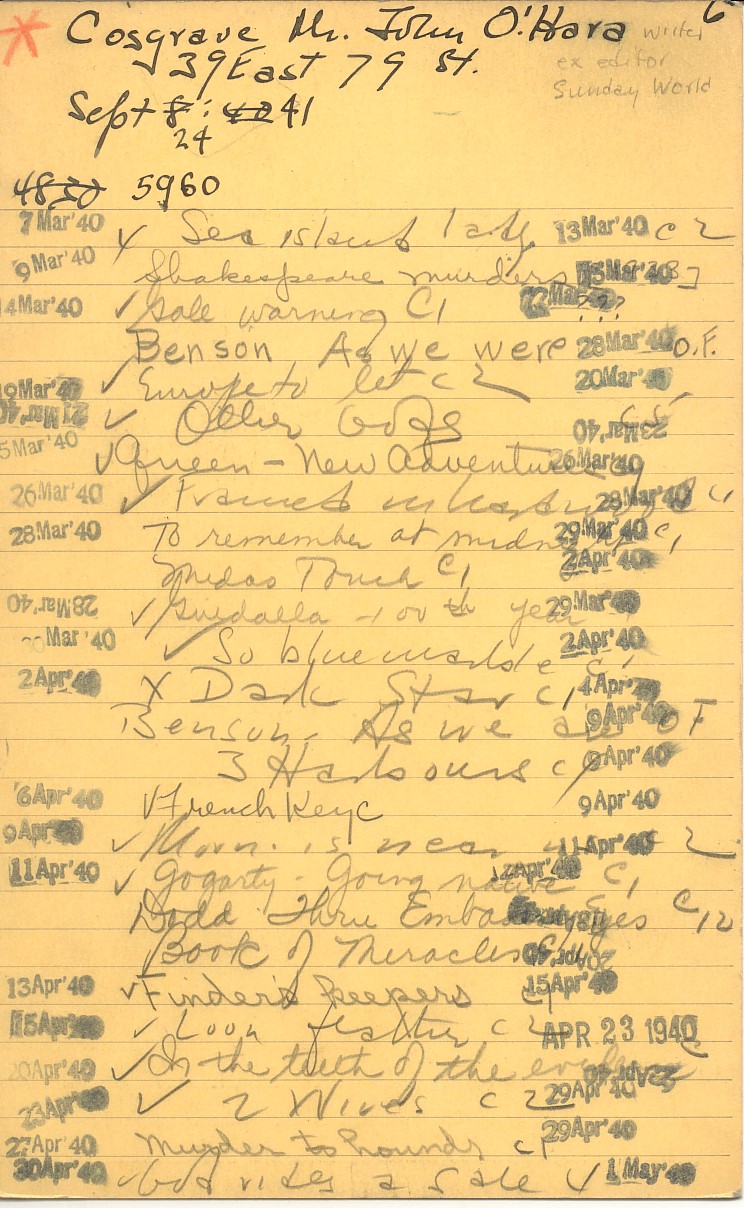 6
Cosgrave Mr. John O'Hara writer
39 East 79 St. ex editor
Sunday World
Sept 8: 40 41
24
4830 5960
7 Mar '40 Sea island lady 13 Mar '40 c 2
9 Mar '40 Shakespeare murders 15 Mar '40
14 Mar '40 ✓ Sale warning C1 ???
Benson As we were 28 Mar '40 O.F.
19 Mar '40 ✓ Europe to let c 2 20 Mar '40
21 Mar '40 ✓ Other Gods 23 Mar '40
5 Mar '40 ✓ Queen - New Adventures 26 Mar '40
26 Mar '40 ✓ 28 Mar '40 C1
28 Mar '40 To remember at midnight C1 29 Mar '40
Midas Touch C1 2 Apr '40
28 Mar '40 ✓ Guedalla - 100th year 29 Mar '40
30 Mar '40 ✓ So blue marble c1 2 Apr '40
2 Apr '40 X Dark Star C1 4 Apr '40
Benson - As we are 9 Apr '40 OF
3 Harbours c1 9 Apr '40
6 Apr '40 ✓ French Key c 9 Apr '40
9 Apr '40 ✓ Morn. is near 11 Apr '40 2
11 Apr '40 ✓ Gogarty - Going native C1 12 Apr '40
Dodd Thru Embassy Eyes C12
Book of Miracles C1 20 Apr '40
13 Apr '40 ✓ Finders keepers c1 15 Apr '40
15 Apr '40 ✓ Loon feather c 2 APR 23 1940
20 Apr '40 ✓ In the teeth of the evidence 22 Apr '40
23 Apr '40 ✓ 2 Wives c 2 29 Apr '40
27 Apr '40 Murder to hounds c1 29 Apr '40
30 Apr '40 God rides a gale 1 May '40